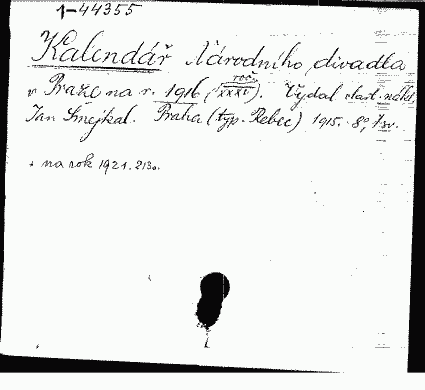 1-44355
Kalendář Národního divadla
v Praze na r. 1916 (roč. XXXI). Vydal vlast. nákl.
Jan Smejkal. Praha (typ. Rebec) 1915. 8°, 1 sv.
+ na rok 1921. 213o.